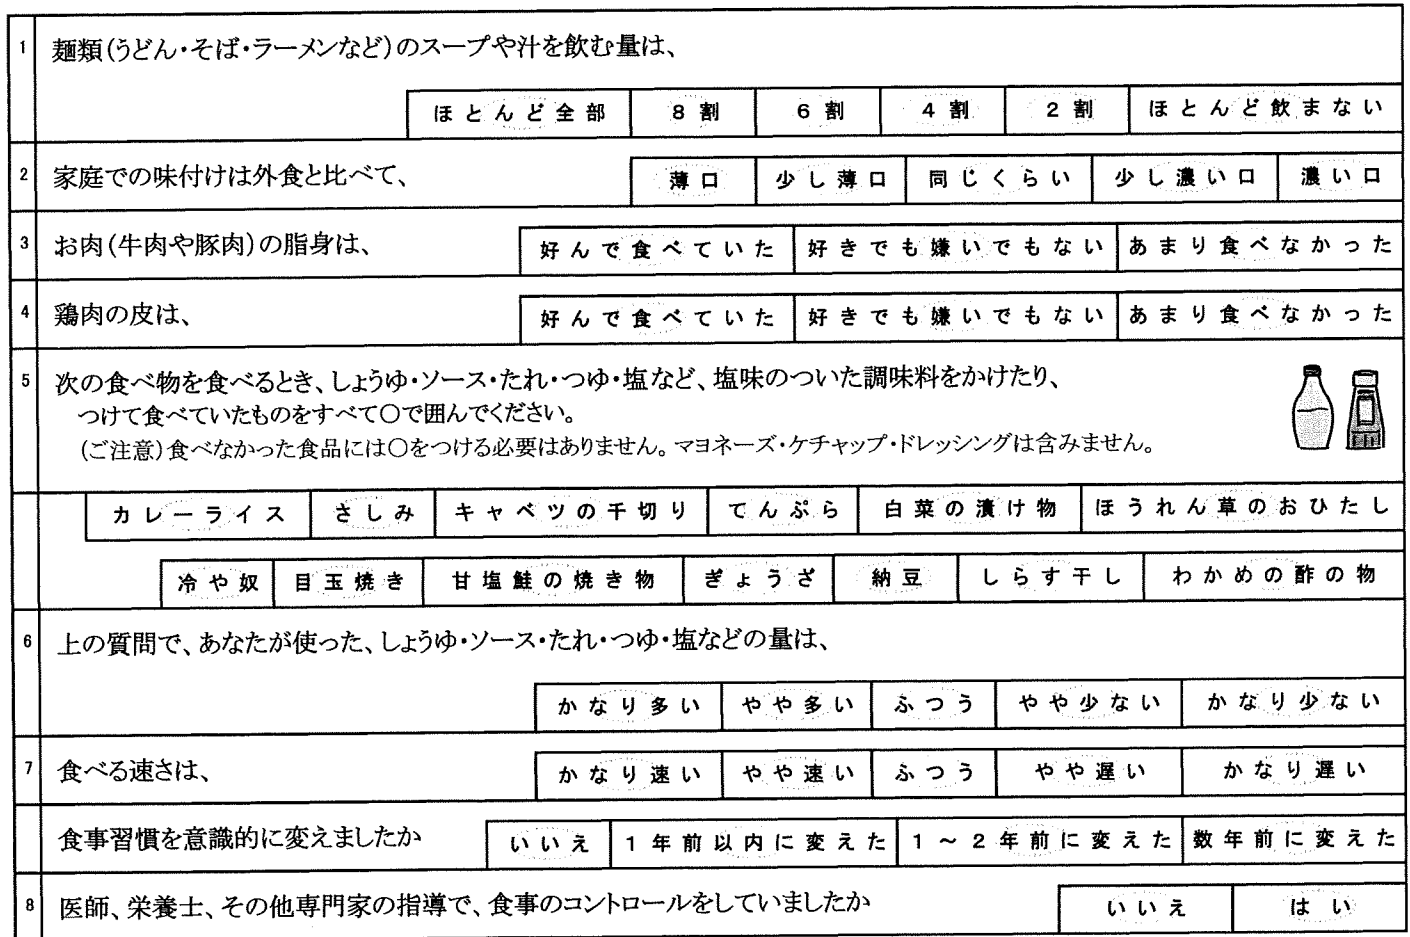 1 麺類(うどん・そば・ラーメンなど)のスープや汁を飲む量は、
ほとんど全部 8割 6割 4割 2割 ほとんど飲まない
2 家庭での味付けは外食と比べて、 薄口 少し薄口 同じくらい 少し濃い口 濃い口
3 お肉(牛肉や豚肉)の脂身は、 好んで食べていた 好きでも嫌いでもない あまり食べなかった
4 鶏肉の皮は、 好んで食べていた 好きでも嫌いでもない あまり食べなかった
5 次の食べ物を食べるとき、しょうゆ・ソース・たれ・つゆ・塩など、塩味のついた調味料をかけたり、
つけて食べていたものをすべて〇で囲んでください。
(ご注意)食べなかった食品には〇をつける必要はありません。マヨネーズ・ケチャップ・ドレッシングは含みません。
カレーライス さしみ キャベツの千切り てんぷら 白菜の漬け物 ほうれん草のおひたし
冷や奴 目玉焼き 甘塩鮭の焼き物 ぎょうざ 納豆 しらす干し わかめの酢の物
6 上の質問で、あなたが使った、しょうゆ・ソース・たれ・つゆ・塩などの量は、
かなり多い やや多い ふつう やや少ない かなり少ない
7 食べる速さは、 かなり速い やや速い ふつう やや遅い かなり遅い
食事習慣を意識的に変えましたか いいえ 1年前以内に変えた 1~2年前に変えた 数年前に変えた
8 医師、栄養士、その他専門家の指導で、食事のコントロールをしていましたか いいえ はい